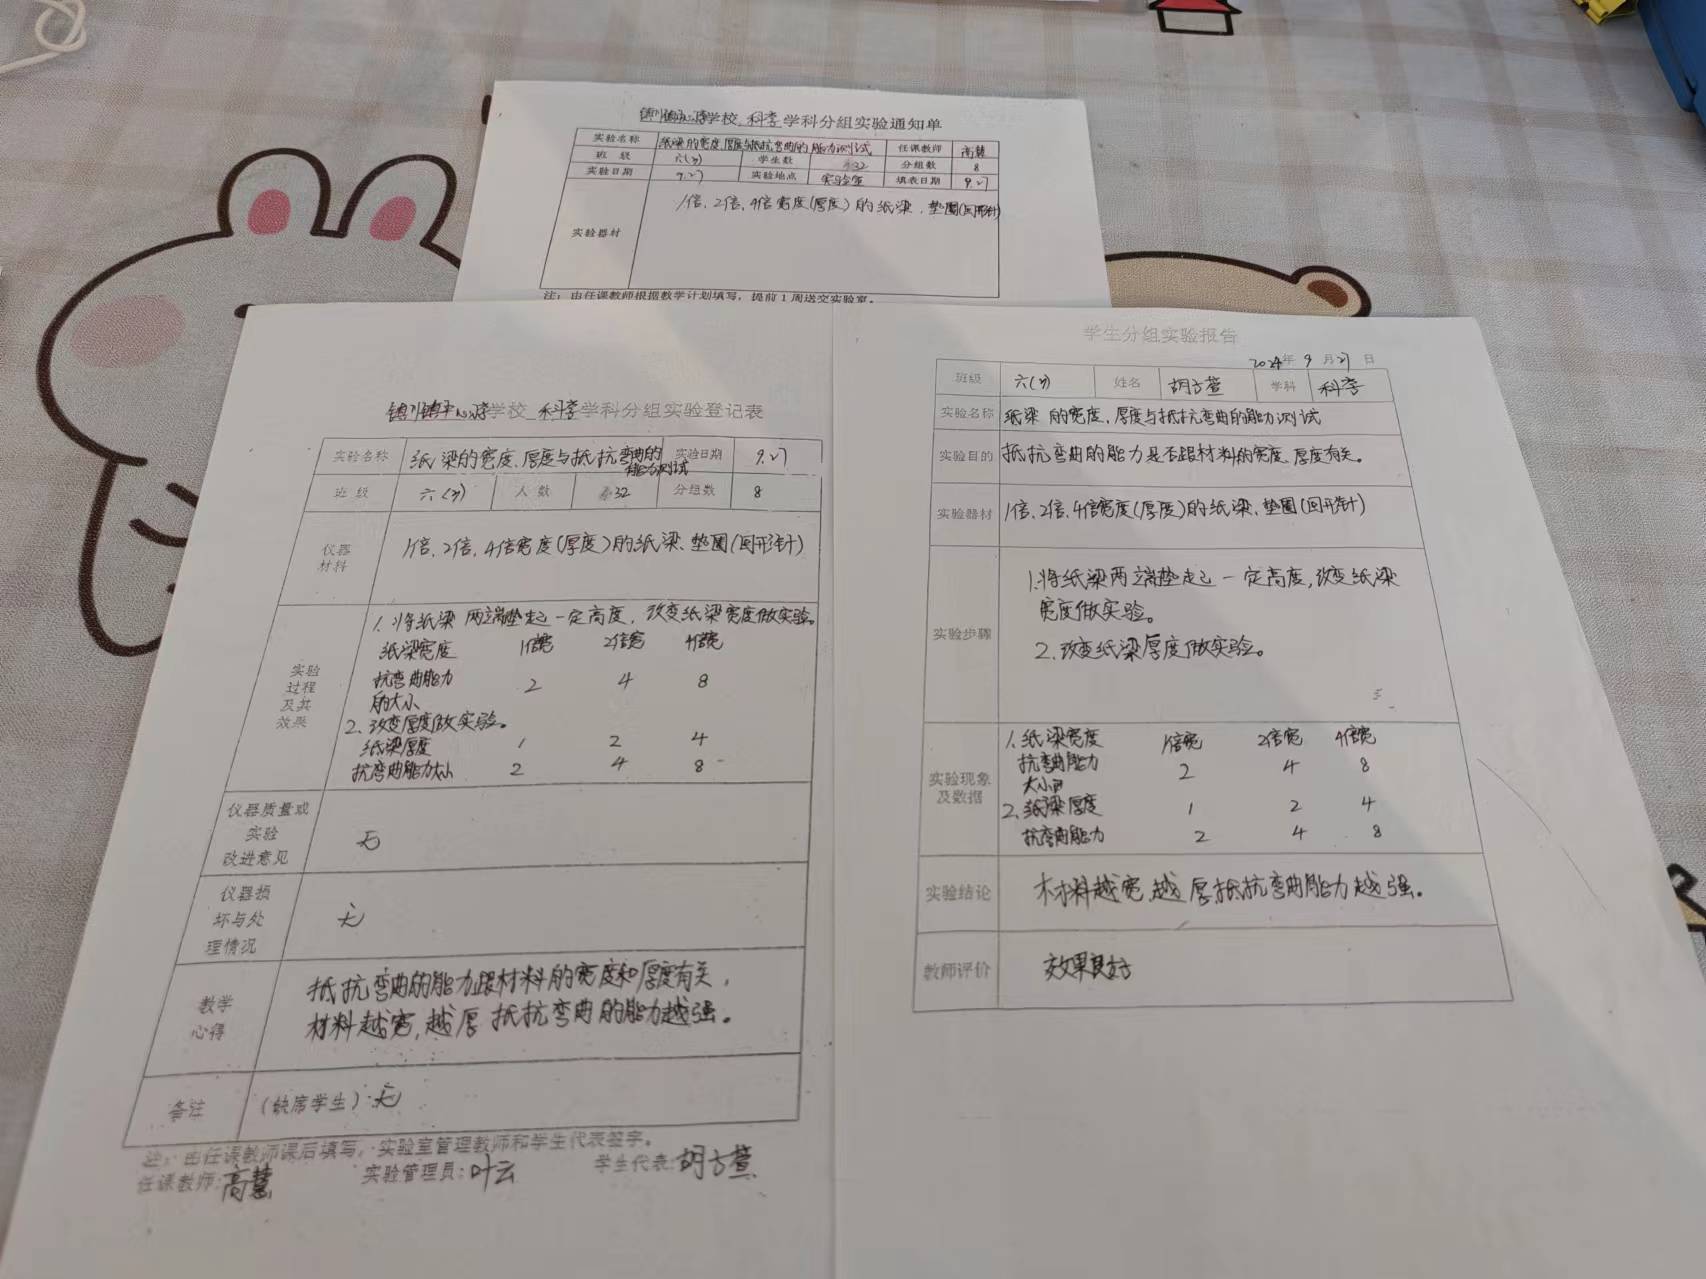 学校 科学 学科分组实验通知单
实验名称 纸梁的宽度、厚度与抵抗弯曲的能力测试 任课教师 高慧
班 级 六(3) 学生数 32 分组数 8
实验日期 9.27 实验地点 实验室 填表日期 9.27
实验器材 1倍、2倍、4倍宽度(厚度)的纸梁、垫圈(回形针)
注:由任课教师根据教学计划填写,提前1周送交实验室。
学校 科学 学科分组实验登记表
实验名称 纸梁的宽度、厚度与抵抗弯曲的能力测试 实验日期 9.27
班 级 六(3) 人 数 32 分组数 8
仪器
材料
1倍、2倍、4倍宽度(厚度)的纸梁、垫圈(回形针)
实验
过程
及其
效果
1.将纸梁两端垫起一定高度,改变纸梁宽度做实验。
纸梁宽度 1倍宽 2倍宽 4倍宽
抗弯曲能力 2 4 8
的大小
2.改变厚度做实验。
纸梁厚度 1 2 4
抗弯曲能力大小 2 4 8
仪器质量或
实验
改进意见
无
仪器损
坏与处
理情况
无
教学
心得
抵抗弯曲的能力跟材料的宽度和厚度有关,
材料越宽,越厚 抵抗弯曲的能力越强。
备注 (缺席学生):无
注:由任课教师课后填写,实验室管理教师和学生代表签字。
任课教师:高慧 实验管理员:叶云 学生代表:胡方萱
学生分组实验报告
2024年 9月27日
班级 六(3) 姓名 胡方萱 学科 科学
实验名称 纸梁的宽度、厚度与抵抗弯曲的能力测试
实验目的 抵抗弯曲的能力是否跟材料的宽度、厚度有关。
实验器材 1倍、2倍、4倍宽度(厚度)的纸梁、垫圈(回形针)
实验步骤
1.将纸梁两端垫起一定高度,改变纸梁
宽度做实验。
2.改变纸梁厚度做实验。
实验现象
及数据
1.纸梁宽度 1倍宽 2倍宽 4倍宽
抗弯曲能力 2 4 8
大小
2.纸梁厚度 1 2 4
抗弯曲能力 2 4 8
实验结论 材料越宽,越厚,抵抗弯曲能力越强。
教师评价 效果良好